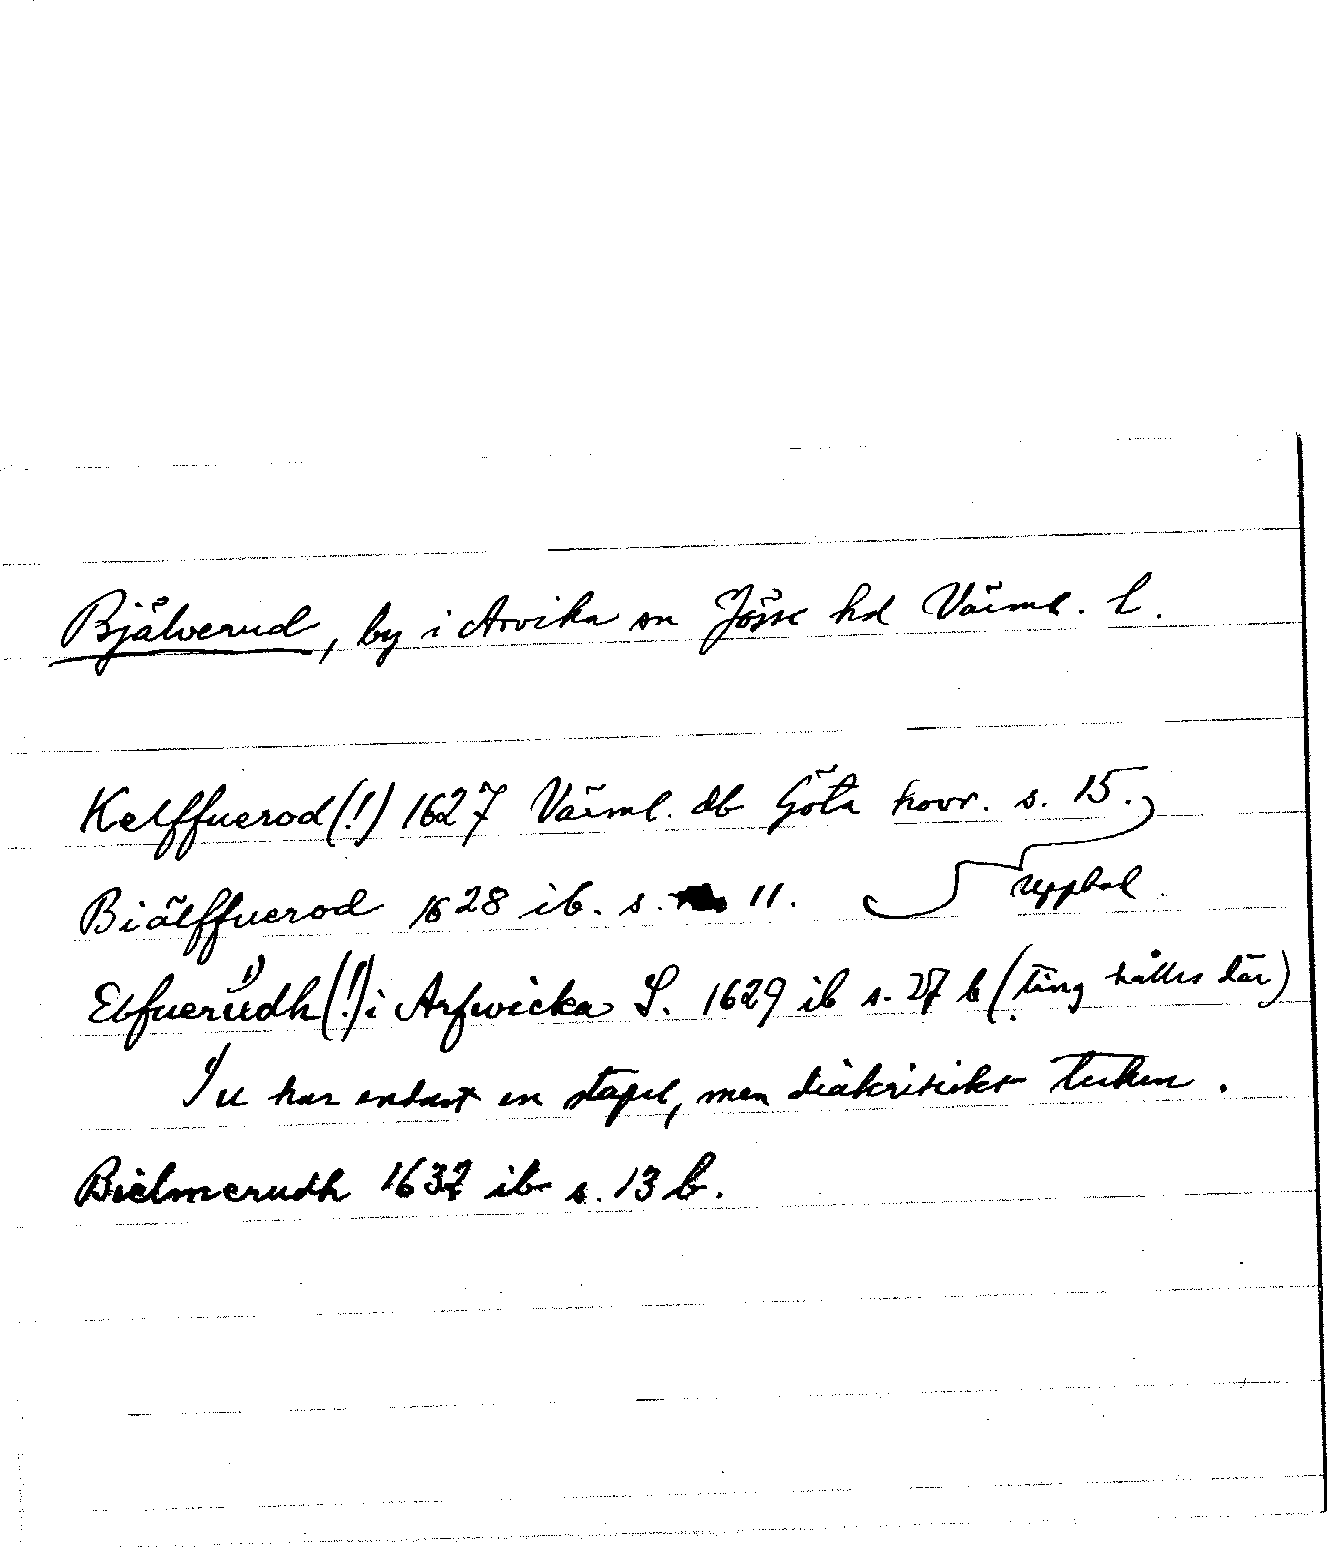 Bjälverud, by i Arvika sn Jösse hd Värml. l.
Kelffuerod (!) 1627 Värml. db Göta hovr. s. 15.
Biälffuerod 1628 ib. s. 11. uppbod
Elfuerudh 1) (!) i Arfwicka S. 1629 ib s. 27 b (ting hålles där)
1) u har endast en stapel, men diakritiskt tecken.
Bielmerudh 1637 ib s. 13 b.